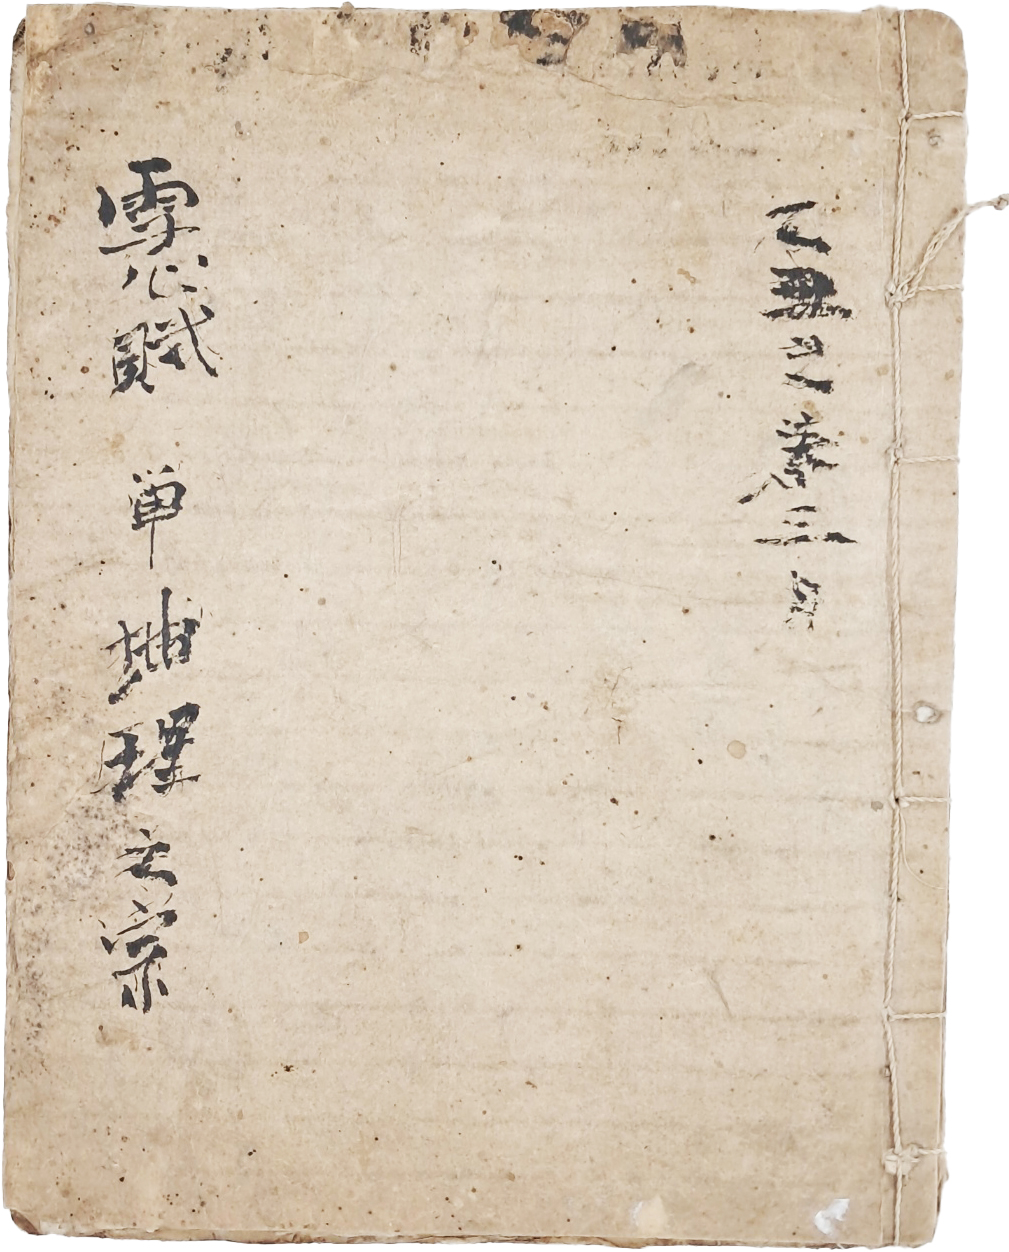 乙丑之春三月
雪心賦 単 地理之宗